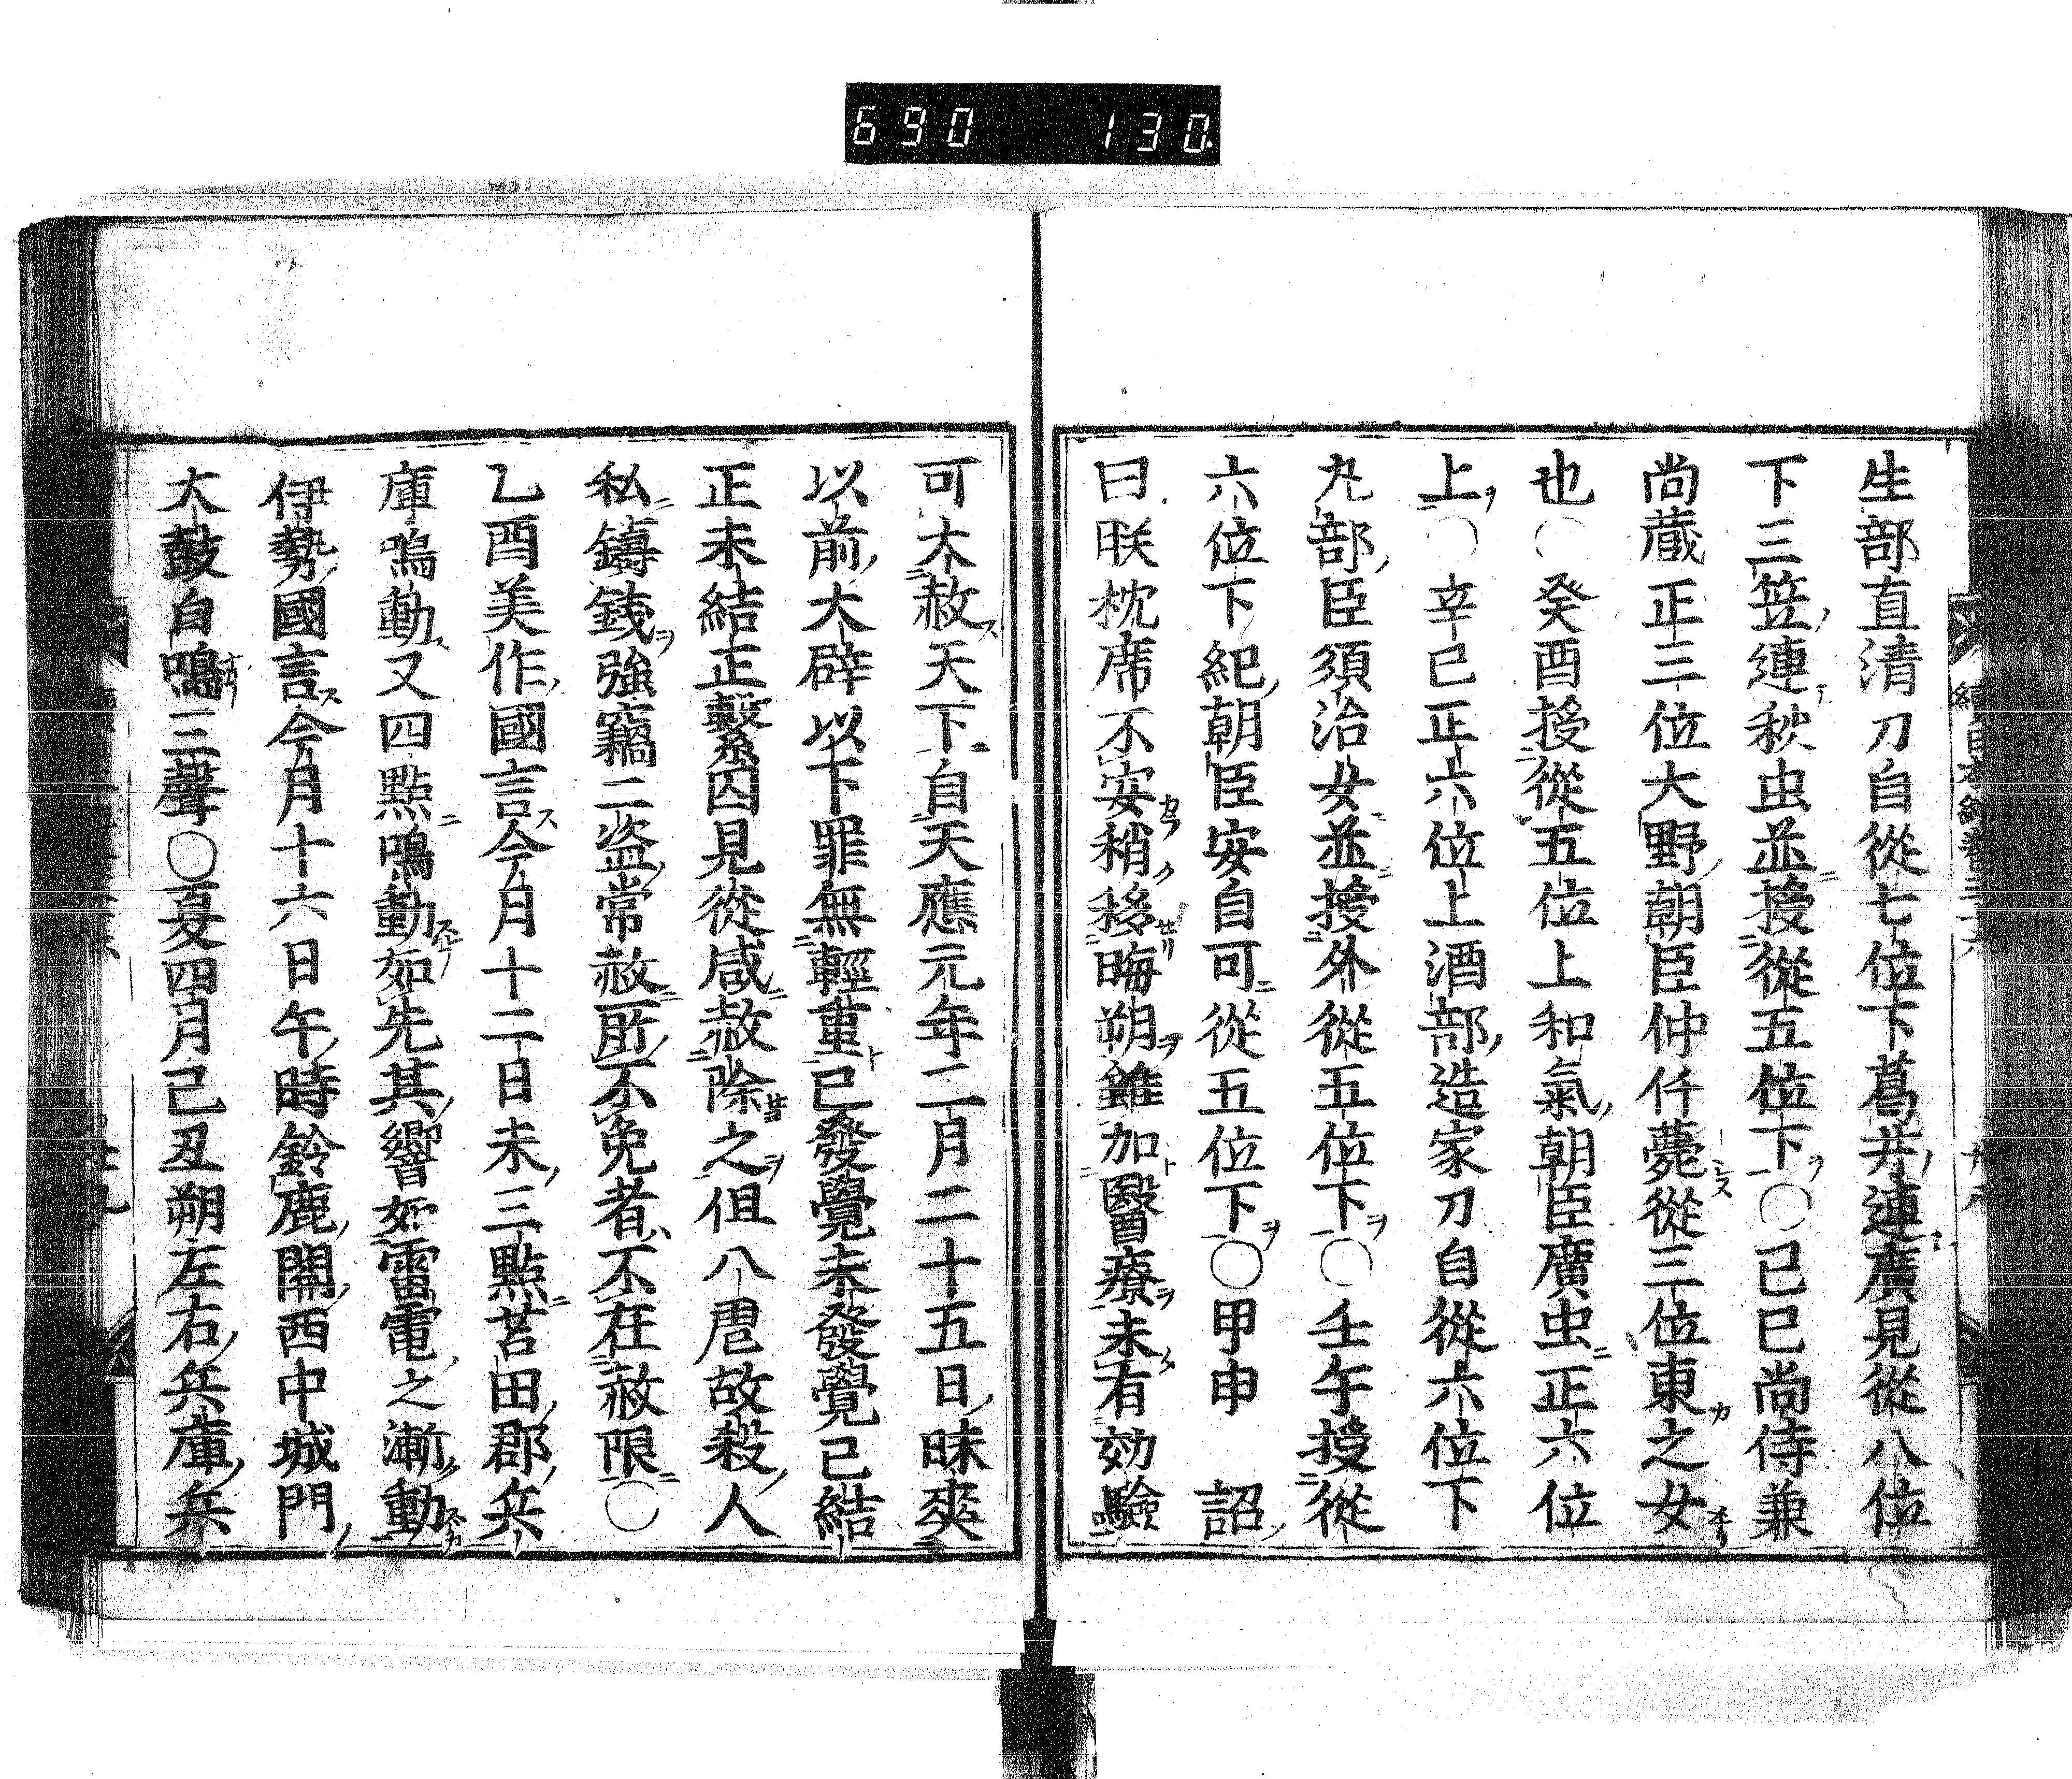 690 130
生部直清刀自從七位下葛井連廣見從八位
下三笠連秋虫並授從五位下○己巳尚侍兼
尚蔵正三位大野朝臣仲仟薨從三位東之女
也○癸酉授從五位上和氣朝臣廣虫正六位
上○辛巳正六位上酒部造家刀自從六位下
丸部臣須治女並授外從五位下○壬午授從
六位下紀朝臣安自可從五位下○甲申 詔
曰朕枕席不安稍移晦朔雖加醫療未有効驗
可大赦天下自天應元年二月二十五日昧爽
以前大辟以下罪無輕重已發覺未發覺已結
正未結正繫囚見從咸赦除之但八虐故殺人
私鑄銭強竊二盗常赦所不免者不在赦限○
乙酉美作國言今月十二日未三點苫田郡兵
庫鳴動又四點鳴動如先其響如雷電之漸動
伊勢國言今月十六日午時鈴鹿関西中城門
大鼓自鳴三聲○夏四月己丑朔左右兵庫兵